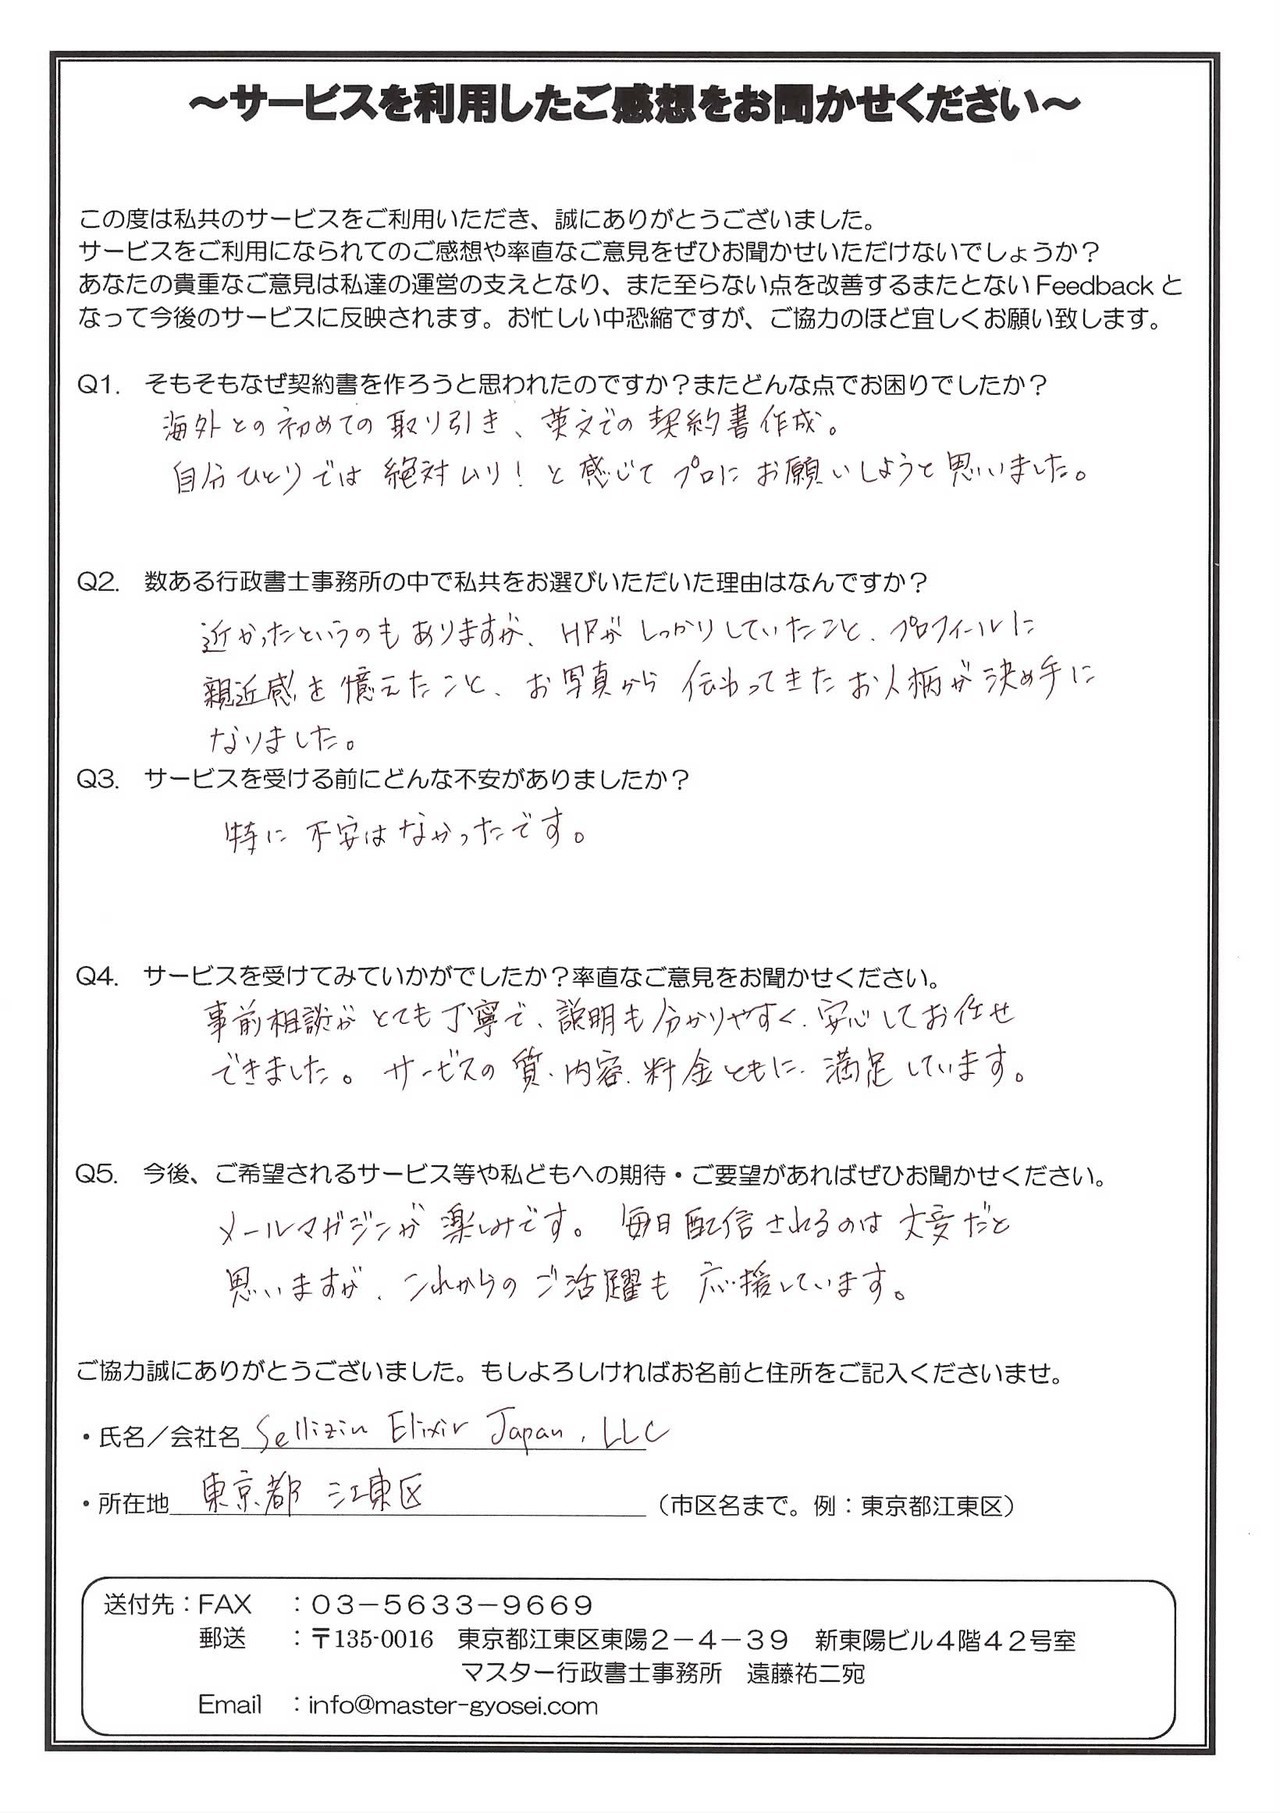 ～サービスを利用したご感想をお聞かせください～
この度は私共のサービスをご利用いただき、誠にありがとうございました。
サービスをご利用になられてのご感想や率直なご意見をぜひお聞かせいただけないでしょうか？
あなたの貴重なご意見は私達の運営の支えとなり、また至らない点を改善するまたとない Feedback と
なって今後のサービスに反映されます。お忙しい中恐縮ですが、ご協力のほど宜しくお願い致します。
Q1.　そもそもなぜ契約書を作ろうと思われたのですか？またどんな点でお困りでしたか？
海外との初めての取り引き、英文での契約書作成。
自分ひとりでは絶対ムリ！と感じてプロにお願いしようと思いました。
Q2.　数ある行政書士事務所の中で私共をお選びいただいた理由はなんですか？
近かったというのもありますが、HPがしっかりしていたこと、プロフィールに
親近感を憶えたこと、お写真から伝わってきたお人柄が決め手に
なりました。
Q3.　サービスを受ける前にどんな不安がありましたか？
特に不安はなかったです。
Q4.　サービスを受けてみていかがでしたか？率直なご意見をお聞かせください。
事前相談がとても丁寧で、説明も分かりやすく、安心してお任せ
できました。サービスの質、内容、料金ともに、満足しています。
Q5.　今後、ご希望されるサービス等や私どもへの期待・ご要望があればぜひお聞かせください。
メールマガジンが楽しみです。毎日配信されるのは大変だと
思いますが、これからのご活躍も応援しています。
ご協力誠にありがとうございました。もしよろしければお名前と住所をご記入くださいませ。
・氏名／会社名 Sellizin Elixir Japan, LLC
・所在地 東京都 江東区 （市区名まで。例：東京都江東区）
送付先：FAX　：０３－５６３３－９６６９
郵送　：〒135-0016　東京都江東区東陽２－４－３９　新東陽ビル４階４２号室
マスター行政書士事務所　遠藤祐二宛
Email　：info@master-gyosei.com